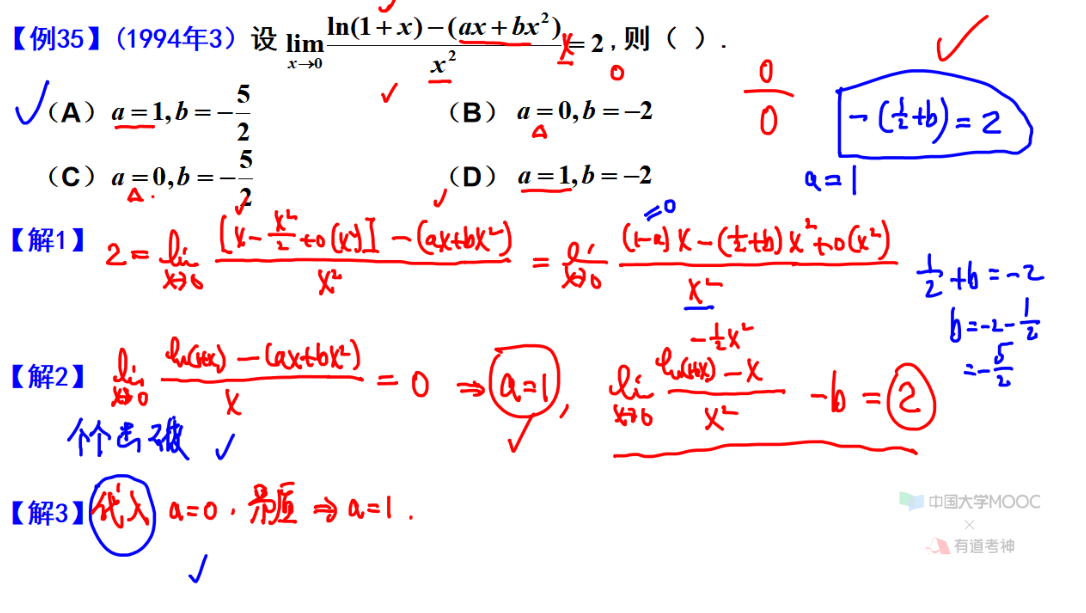 【例35】(1994年3) 设 lim_{x→0} [ln(1+x)-(ax+bx²)]/x² = 2, 则( ).
x 0
0/0
-(1/2+b)=2
a=1
(A) a=1, b=-5/2 (B) a=0, b=-2
(C) a=0, b=-5/2 (D) a=1, b=-2
【解1】 2 = lim_{x→0} {[x-x²/2+o(x²)]-(ax+bx²)}/x² = lim_{x→0} [(1-a)x-(1/2+b)x²+o(x²)]/x²
=0
1/2+b=-2
b=-2-1/2
=-5/2
【解2】 lim_{x→0} [ln(1+x)-(ax+bx²)]/x = 0 ⇒ a=1, lim_{x→0} [ln(1+x)-x]/x² -b = 2
-1/2x²
个个击破
【解3】 代入 a=0. 矛盾 ⇒ a=1.
中国大学MOOC
×
有道考神